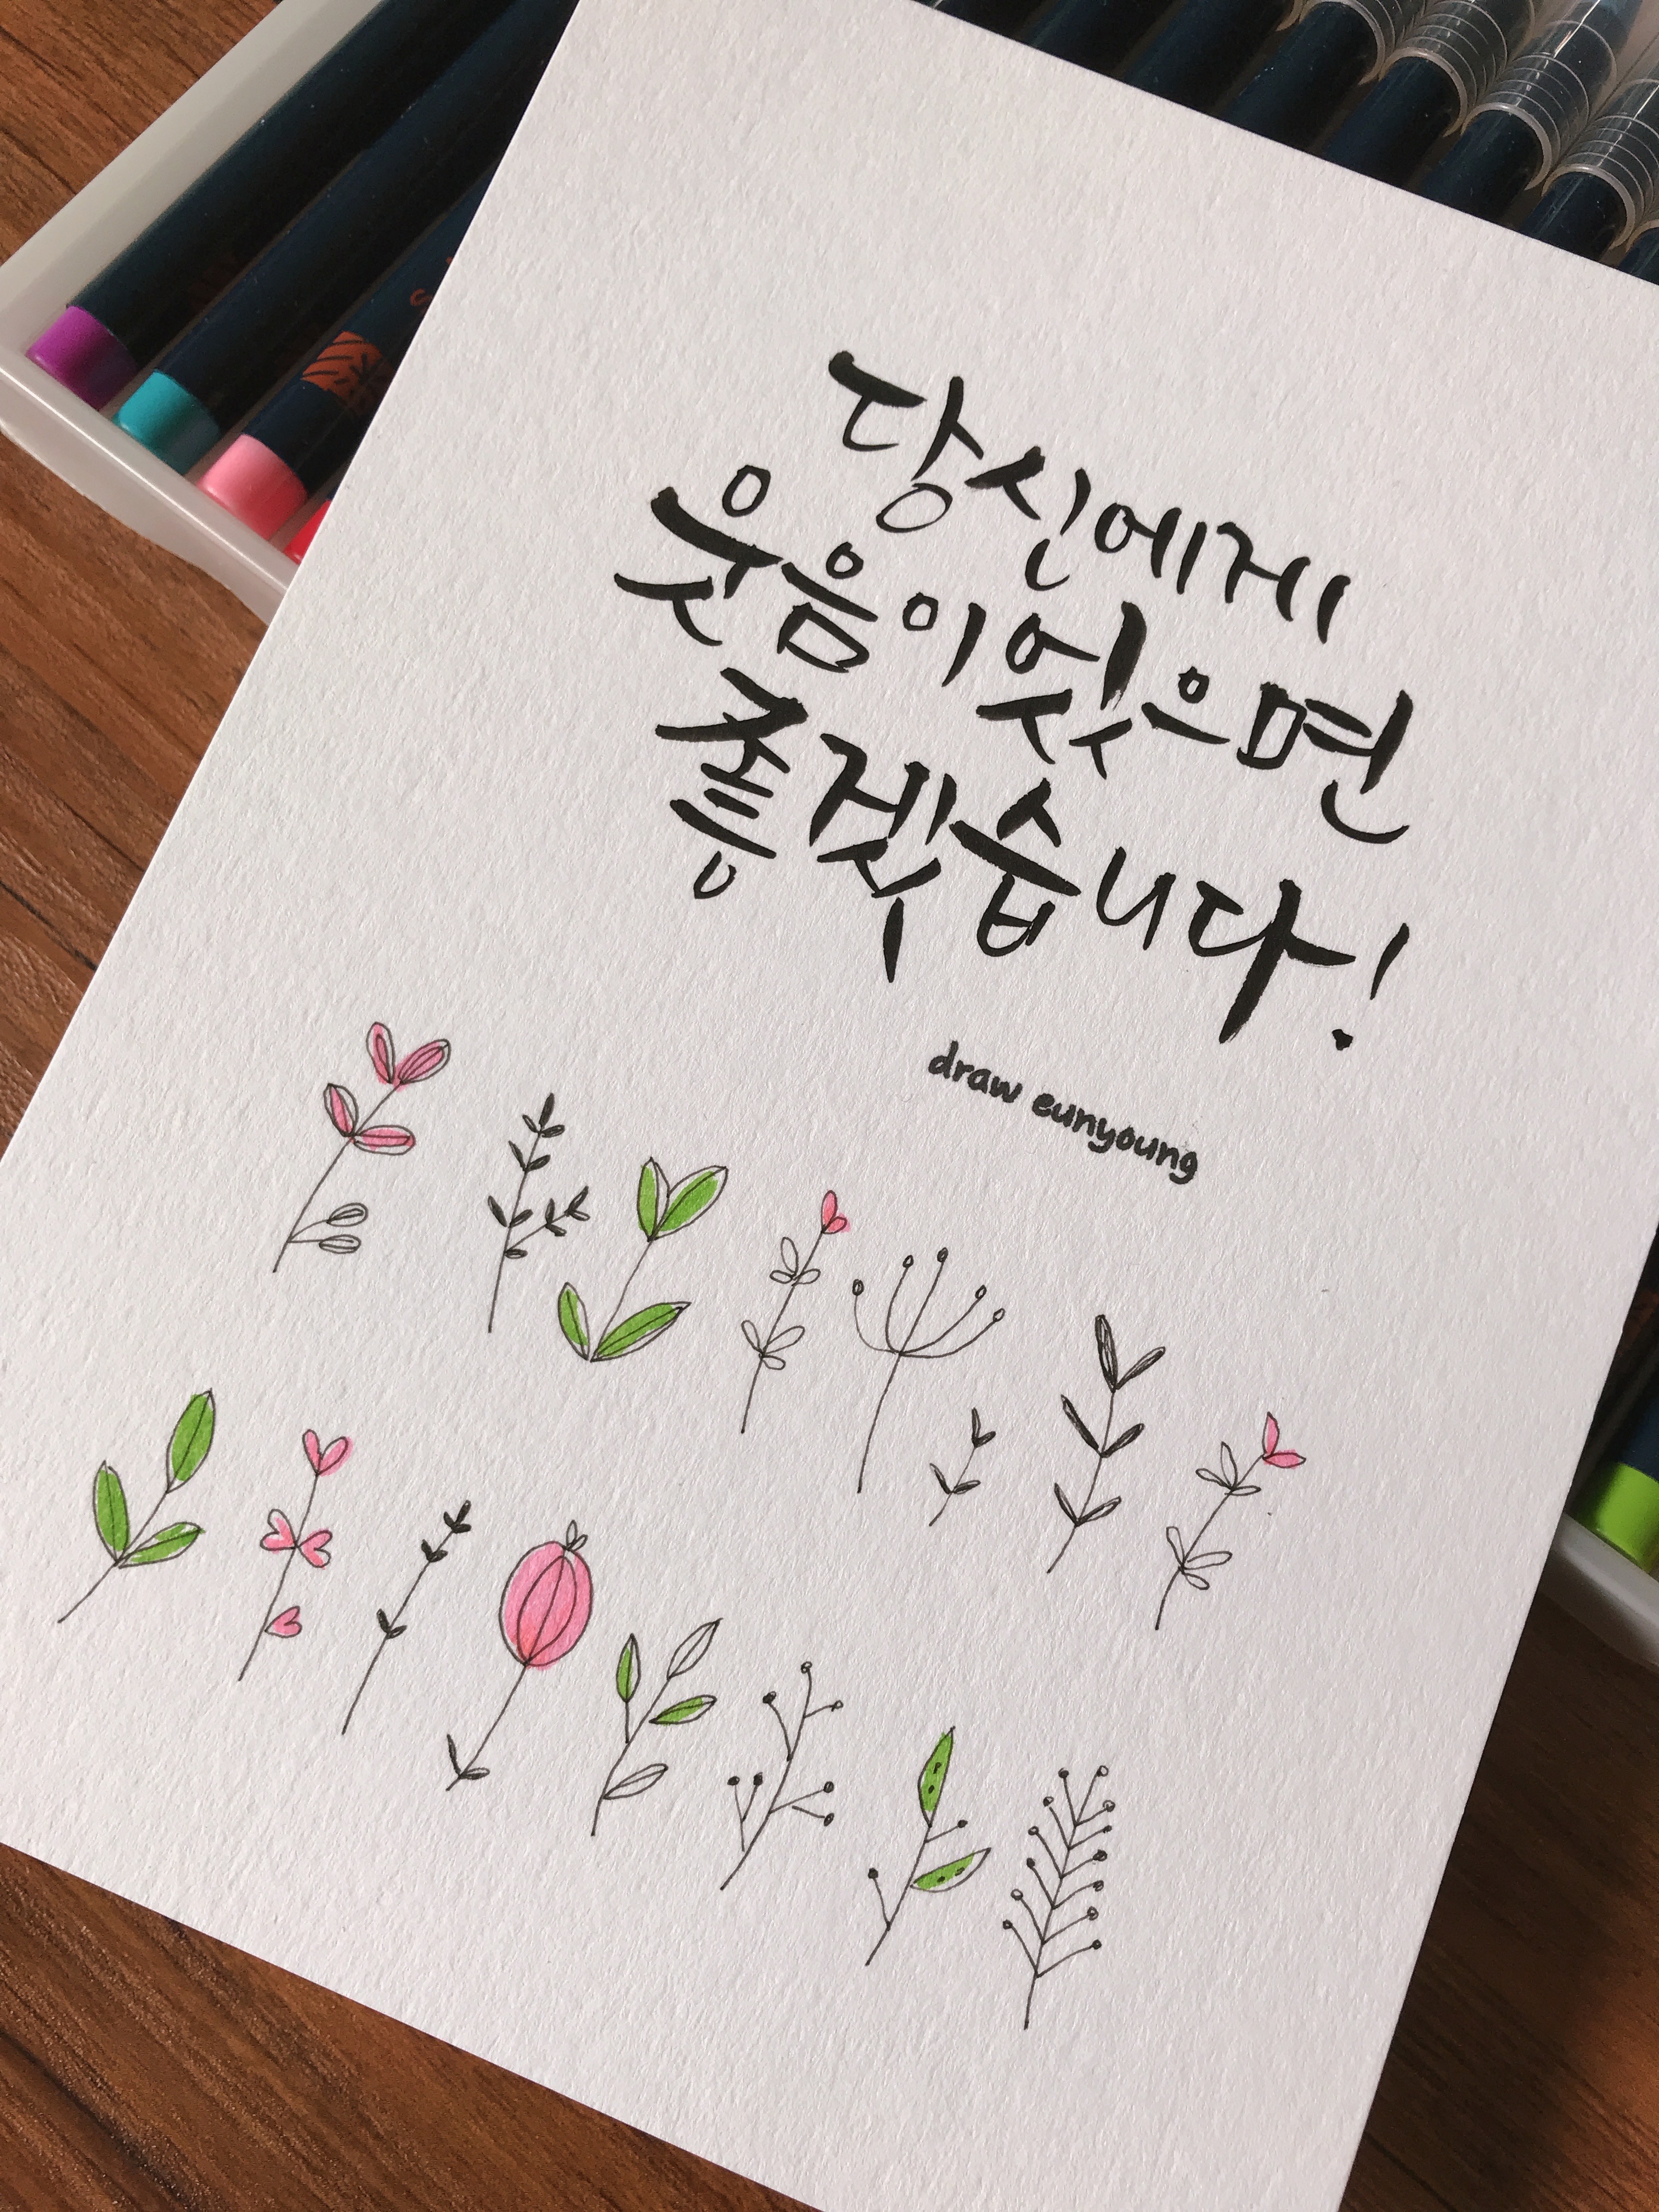 당신에게
웃음이있으면
좋겠습니다!
draw eunyoung